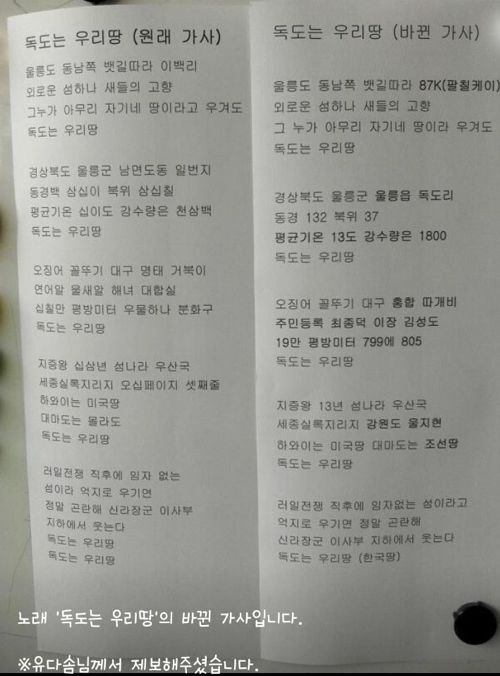 독도는 우리땅 (원래 가사)
울릉도 동남쪽 뱃길따라 이백리
외로운 섬하나 새들의 고향
그누가 아무리 자기네 땅이라고 우겨도
독도는 우리땅
경상북도 울릉군 남면도동 일번지
동경백 삼십이 북위 삼십칠
평균기온 십이도 강수량은 천삼백
독도는 우리땅
오징어 꼴뚜기 대구 명태 거북이
연어알 물새알 해녀 대합실
십칠만 평방미터 우물하나 분화구
독도는 우리땅
지증왕 십삼년 섬나라 우산국
세종실록지리지 오십페이지 셋째줄
하와이는 미국땅
대마도는 몰라도
독도는 우리땅
러일전쟁 직후에 임자 없는
섬이라 억지로 우기면
정말 곤란해 신라장군 이사부
지하에서 웃는다
독도는 우리땅
독도는 우리땅
독도는 우리땅 (바뀐 가사)
울릉도 동남쪽 뱃길따라 87K(팔칠케이)
외로운 섬하나 새들의 고향
그 누가 아무리 자기네 땅이라 우겨도
독도는 우리땅
경상북도 울릉군 울릉읍 독도리
동경 132 북위 37
평균기온 13도 강수량은 1800
독도는 우리땅
오징어 꼴뚜기 대구 홍합 따개비
주민등록 최종덕 이장 김성도
19만 평방미터 799에 805
독도는 우리땅
지증왕 13년 섬나라 우산국
세종실록지리지 강원도 울지현
하와이는 미국땅 대마도는 조선땅
독도는 우리땅
러일전쟁 직후에 임자없는 섬이라고
억지로 우기면 정말 곤란해
신라장군 이사부 지하에서 웃는다
독도는 우리땅 (한국땅)
노래 '독도는 우리땅'의 바뀐 가사입니다.
※유다솜님께서 제보해주셨습니다.